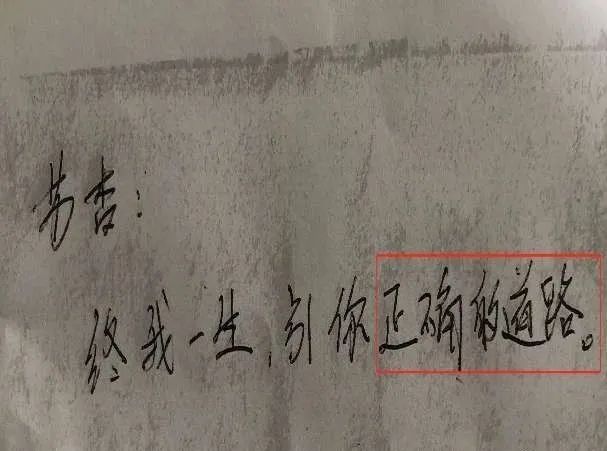 芳:
终我一生,引你正确的道路。